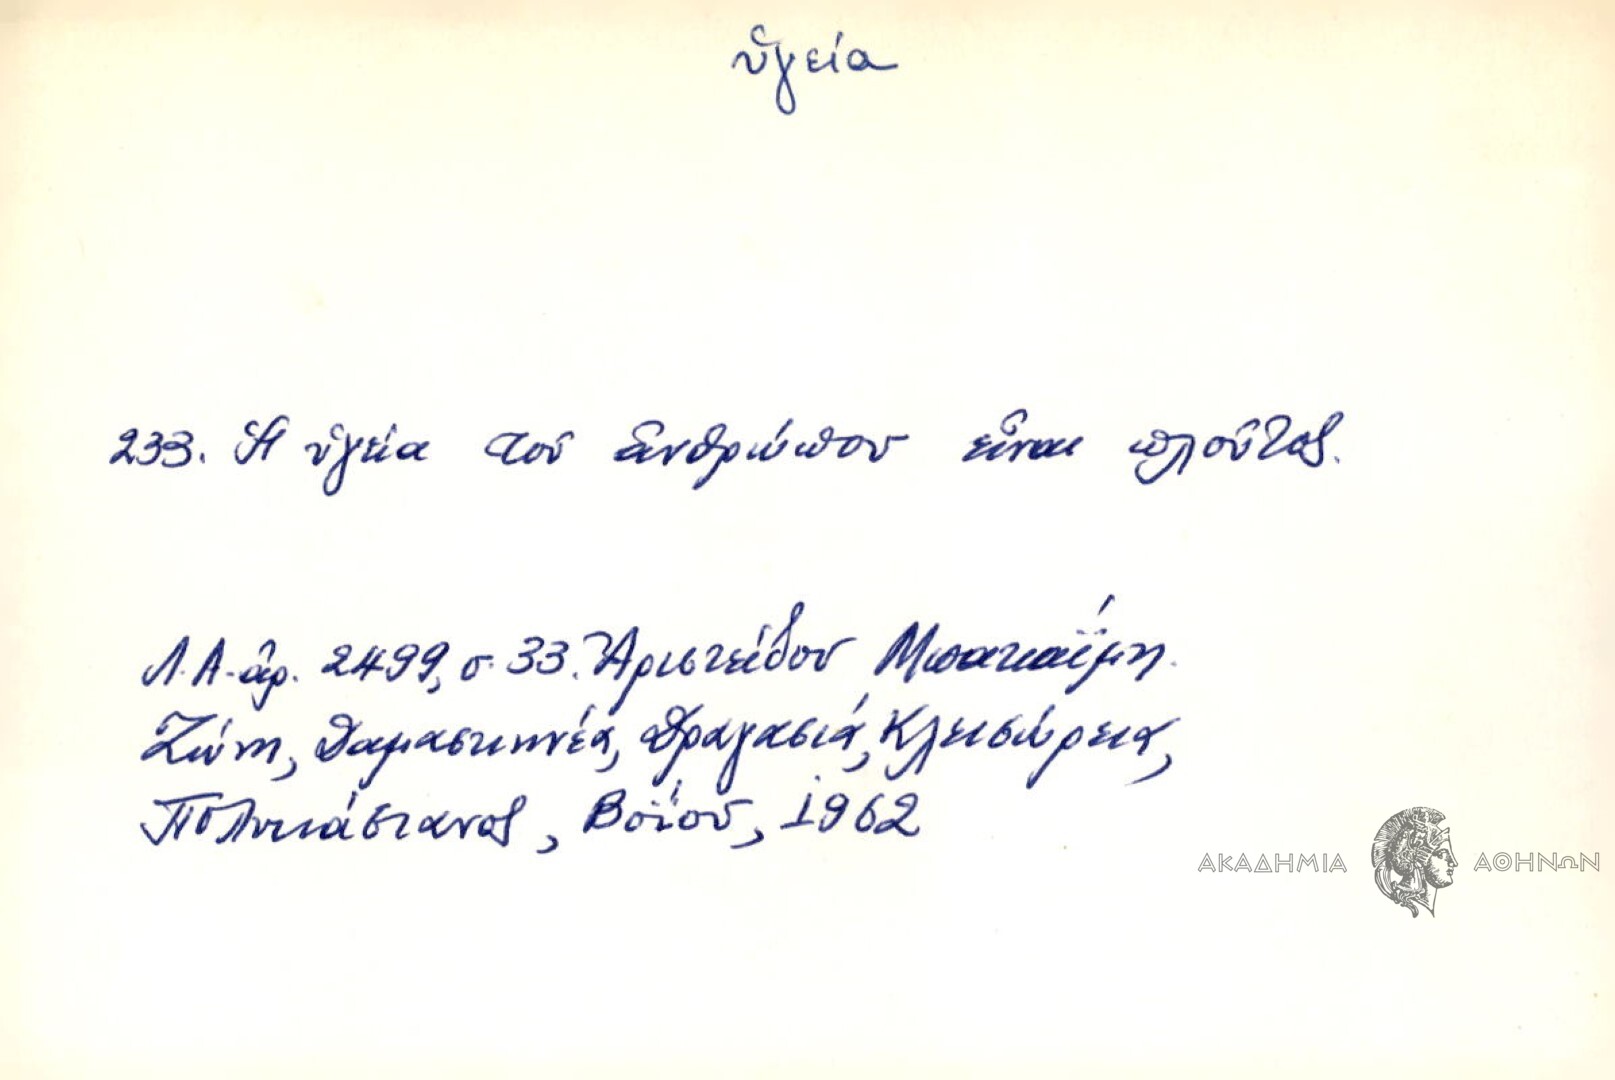 ὑγεία
233. Ἡ ὑγεία τοῦ ἀνθρώπου εἶναι πλοῦτος.
Λ.Α. ἀρ. 2499, σ. 33. Ἀριστείδου
Ζώνη, Δαμασκηνέα, Δραγασιά, Κλεισώρεια,
Πολυκάστανος, Βοΐου, 1962
ΑΚΑΔΗΜΙΑ ΑΘΗΝΩΝ